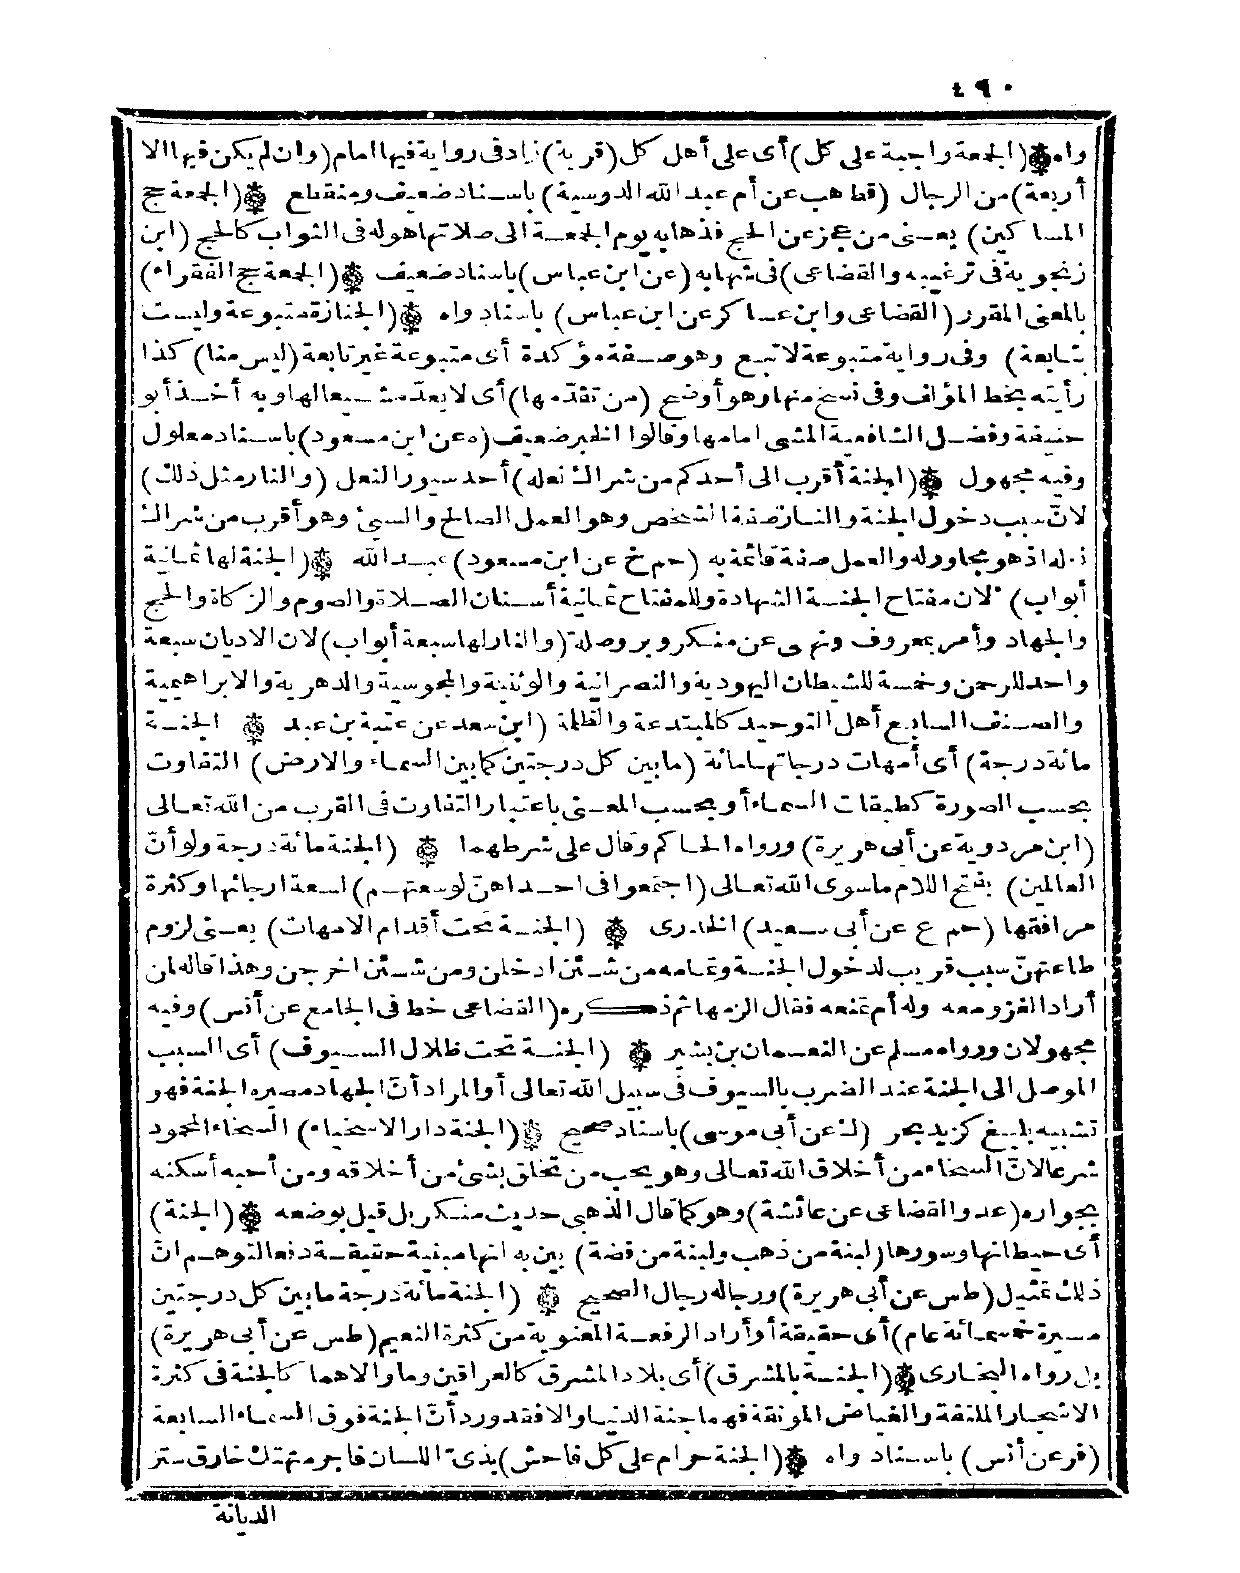 ٤٩٠
واه (الجمعة واجبة على كل) أى على أهل كل (قرية) زاد فى رواية فيها امام (وان لم يكن فيها الا
أربعة) من الرجال (قط هب عن أم عبد الله الدوسية) باسناد ضعيف ومنقطع (الجمعة حج
المساكين) يعنى من عجز عن الحج فذهابه يوم الجمعة الى صلاتها هو له فى الثواب كالحج (ابن
زنجوية فى ترغيبه والقضاعى) فى شهابه (عن ابن عباس) باسناد ضعيف (الجمعة حج الفقراء)
بالمعنى المقرر (القضاعى وابن عساكر عن ابن عباس) باسناد واه (الجنازة متبوعة وليست
بتابعة) وفى رواية متبوعة لا تتبع وهو صفة مؤكدة أى متبوعة غير تابعة (ليس منا) كذا
رأيته بخط المؤلف وفى نسخ منها وهو أوضح (من تقدمها) أى لا يعد مشيعا لها وبه أخذ أبو
حنيفة وفضل الشافعية المشى امامها وقالوا الخبر ضعيف (ه عن ابن مسعود) باسناد معلول
وفيه مجهول (الجنة أقرب الى أحدكم من شراك نعله) أحد سيور النعل (والنار مثل ذلك)
لان سبب دخول الجنة والنار صفة الشخص وهو العمل الصالح والسيئ وهو أقرب من شراك
نعله اذ هو مجاور له والعمل صفة قائمة به (حم خ عن ابن مسعود) عبد الله (الجنة لها ثمانية
أبواب) لان مفتاح الجنة الشهادة وللمفتاح ثمانية أسنان الصلاة والصوم والزكاة والحج
والجهاد وأمر بمعروف ونهى عن منكر وبر وصلة (والنار لها سبعة أبواب) لان الاديان سبعة
واحد للرحمن وخمسة للشيطان اليهودية والنصرانية والوثنية والمجوسية والدهرية والابراهيمية
والصنف السابع أهل التوحيد كالمبتدعة والظلمة (ابن سعد عن عتبة بن عبد (الجنة
مائة درجة) أى أمهات درجاتها مائة (ما بين كل درجتين كما بين السماء والارض) التفاوت
بحسب الصورة كطبقات السماء أو بحسب المعنى باعتبار التفاوت فى القرب من الله تعالى
(ابن مردوية عن أبى هريرة) ورواه الحاكم وقال على شرطهما (الجنة مائة درجة ولو أن
العالمين) بفتح اللام ما سوى الله تعالى (اجتمعوا فى احداهن لوسعتهم) لسعة ارجائها وكثرة
مرافقها (حم ع عن أبى سعيد) الخدرى (الجنة تحت أقدام الامهات) يعنى لزوم
طاعتهن سبب قريب لدخول الجنة وتمامه من شئن ادخلن ومن شئن اخرجن وهذا قاله لمن
أراد الغزو معه وله أم تمنعه فقال الزمها ثم ذكره (القضاعى خط فى الجامع عن أنس) وفيه
مجهولان ورواه مسلم عن النعمان بن بشير (الجنة تحت ظلال السيوف) أى السبب
الموصل الى الجنة عند الضرب بالسيوف فى سبيل الله تعالى أو المراد أن الجهاد مصيره الجنة فهو
تشبيه بليغ كزيد بحر (ك عن أبى موسى) باسناد صحيح (الجنة دار الاسخياء) السخاء المحمود
شرعا لان السخاء من أخلاق الله تعالى وهو يحب من تخلق بشئ من أخلاقه ومن أحبه أسكنه
بجواره (عد والقضاعى عن عائشة) وهو كما قال الذهبى حديث منكر بل قيل بوضعه (الجنة)
أى حيطانها وسورها (لبنة من ذهب ولبنة من فضة) بين به انها مبنية حقيقة دفعا لتوهم ان
ذلك تمثيل (طس عن أبى هريرة) ورجاله رجال الصحيح (الجنة مائة درجة ما بين كل درجتين
مسيرة خمسمائة عام) أى حقيقة أو أراد الرفعة المعنوية من كثرة النعيم (طس عن أبى هريرة)
بل رواه البخارى (الجنة بالمشرق) أى بلاد المشرق كالعراقين وما والاهما كالجنة فى كثرة
الاشجار الملتفة والغياض المونقة فهما جنة الدنيا والا فقد ورد أن الجنة فوق السماء السابعة
(فر عن أنس) باسناد واه (الجنة حرام على كل فاحش) بذىّ اللسان فاجر متهتك خارق ستر
الديانة